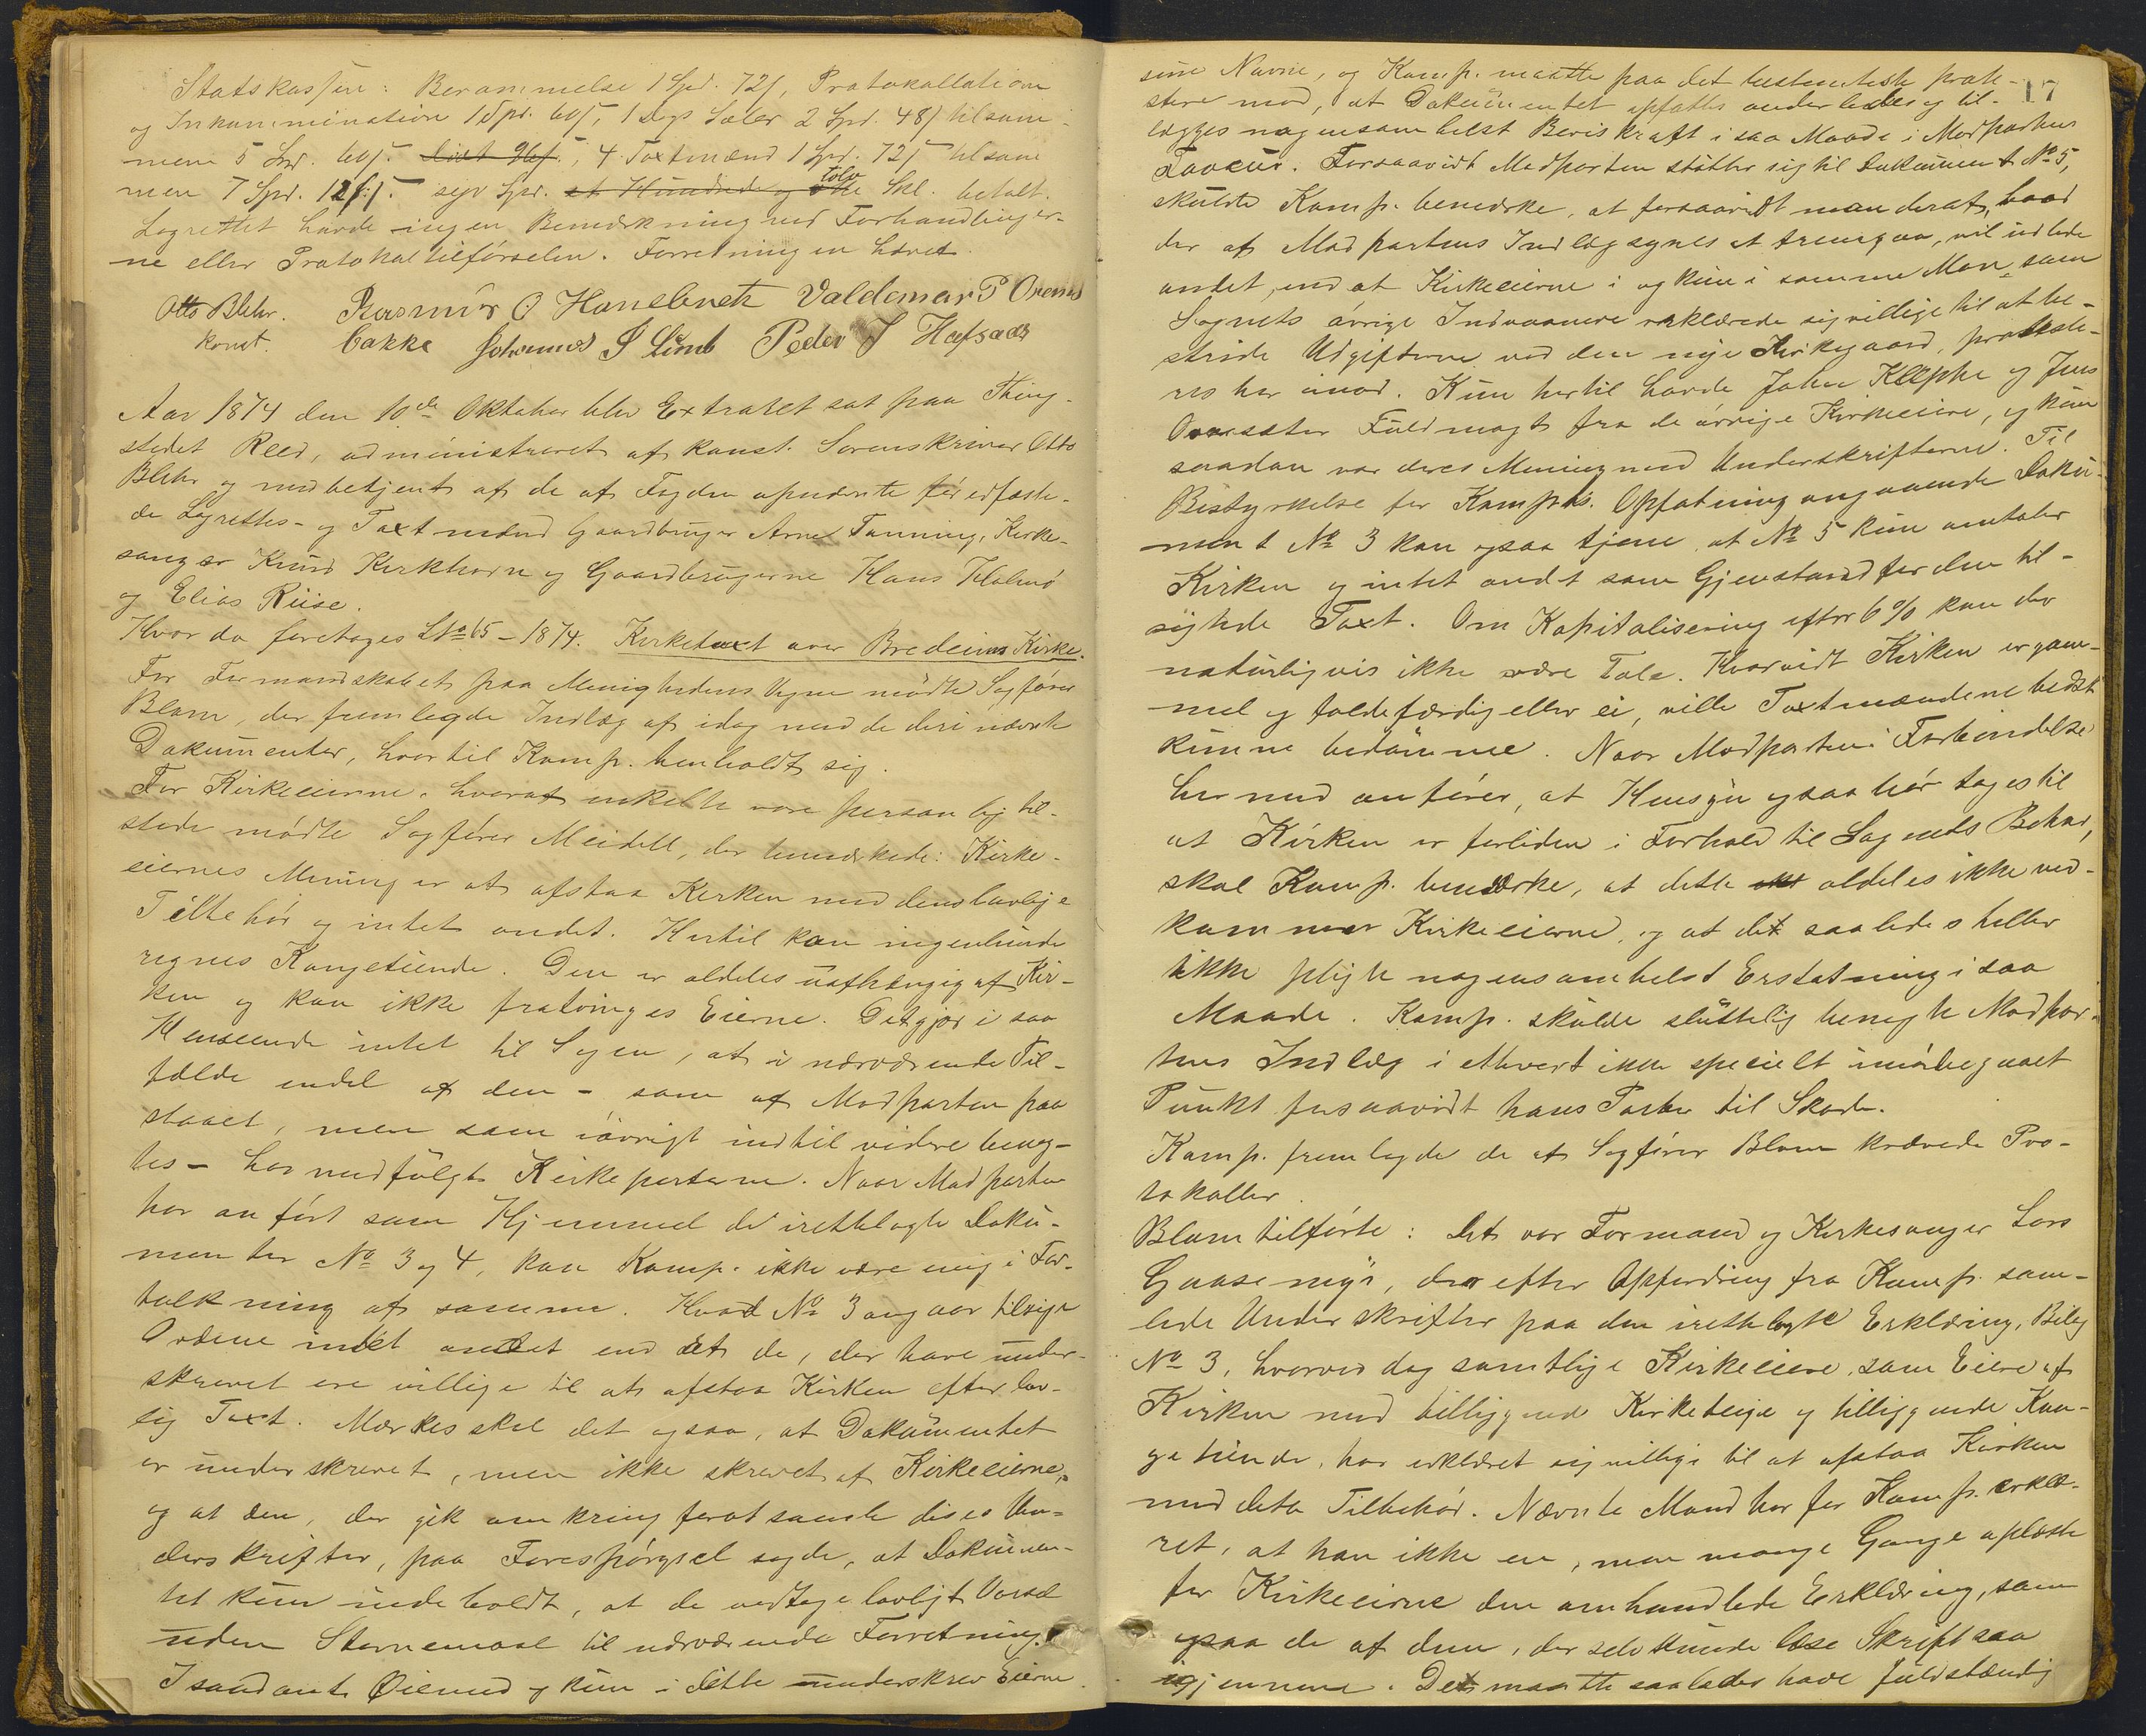 Statskassen: Berammelse 1 Spd. 72 ſ, Protokollation
og Inkamination 1 Spd. 60 ſ, 1 Dags Salær 2 Spd. 48 ſ tilsam-
men 5 Spd. 60 ſ. 4 Taxtmænd 1 Spd. 72 ſ tilsam
men 7 Spd. 12 ſ. syv Spd. et Hundrede og tolv Skl. betalt.
Lagrettet havde ingen Bemærkning ved Forhandlinger-
ne eller Protokoltilførselen. Forretningen hævet.
Otto Blehr. Rasmus O Valdemar P
konst. Bakke Johannes Peder J
Aar 1874 den 10de Oktober blev Extraret sat paa Thing-
stedet Reed, administreret af konst. Sorenskriver Otto
Blehr og medbetjent af de af Fogden opnævnte før edfæste-
de Lagrettes- og Taxtmænd Gaardbruger Arne Tanning, Kirke-
sanger Knud Kirkhorn og Gaardbrugerne Hans
og Elias Riise.
Hvor da foretoges L No 65-1874. Kirketaxt over Bredeims Kirke.
For Formandskabet paa Menighedens Vegne mødte Sagfører
Blom, der fremlagde Indlæg af idag med de deri nævnte
Dokumenter, hvortil Komp. henholdt sig.
For Kirkeeierne, hvoraf enkelte vare personlig til-
stede mødte Sagfører Meidell, der bemærkede: Kirke-
eiernes Mening er at afstaa Kirken med dens lovlige
Tilbehør og intet andet. Hertil kan ingenlunde
regnes Kongetiende. Den er aldeles uafhængig af Kir-
ken og kan ikke fratvinges Eierne. Det gjør i saa
Henseende intet til Sagen, at i nærværende Til-
fælde endel af den - som af Modparten paa
staaet, men som iøvrigt indtil videre beneg-
tes - har medfulgt Kirkeparterne. Naar Modparten
har anført som Hjemmel de irettelagte Doku-
menter No 3 og 4, kan Komp. ikke være enig i For-
tolkning af samme. Hvad No 3 angaar tilsiger
Ordene intet andet end at de, der have under-
skrevet ere villige til at afstaa Kirken efter lov-
lig Taxt. Mærkes skal det ogsaa, at Dokumentet
er underskrevet, men ikke skrevet af Kirkeeierne,
og at den, der gik omkring forat samle disses Un-
derskrifter, paa Forespørgsel sagde, at Dokumen-
tet kun indeholdt, at de vedtoge lovligt Varsel
uden Stevnemaal til nærværende Forretning.
I saadant Øiemed og kun i dette underskrev Eierne
17
sine Navne, og Komp. maatte paa det bestemteste prote-
stere mod, at Dokumentet opfattes anderledes og til-
lægges nogensomhelst Beviskraft i saa Maade i Modpartens
Faveur. Forsaavidt Modparten støtter sig til Dokument No 5,
skulde Komp. bemærke, at forsaavidt man deraf, hvad
der af Modpartens Indlæg synes at fremgaa, vil udlede
andet, end at Kirkeeierne i og kun i samme Mon som
Sognets øvrige Indvaanere erklærede sig villige til at be-
stride Udgifterne ved den nye Kirkegaard, proteste-
res her imod. Kun hertil havde John Kleppe og Jens
Fuldmagt fra de øvrige Kirkeeiere, og kun
saadan var deres Mening med Underskrifterne. Til
Bestyrkelse for Komp.ts. Opfatning angaaende Doku-
ment No 3 kan ogsaa tjene, at No 5 kun omtaler
Kirken og intet andet som Gjenstand for den til-
sigtede Taxt. Om Kapitalisering efter 6 % kan der
naturligvis ikke være Tale. Hvorvidt Kirken er gam-
mel og faldefærdig eller ei, ville Taxtmændene bedst
kunne bedømme. Naar Modparten i Forbindelse
hermed anfører, at Hensyn ogsaa bør tages til
at Kirken er forliden i Forhold til Sognets Behov,
skal Komp. bemærke, at dette aldeles ikke ved-
kommer Kirkeeierne, og at det saaledes heller
ikke pligte nogensomhelst Erstatning i saa
Maade. Komp. skulde sluttelig benegte Modpar-
tens Indlæg i ethvert ikke specielt imødegaaet
Punkt forsaavidt hans Parter til Skade.
Komp. fremlagde de af Sagfører Blom krævede Pro-
tokoller.
Blom tilførte: Det var Formand og Kirkesanger Lars
Gaasemyr, der efter Opfordring fra Komp. sam-
lede Underskrifter paa den irettelagte Erklæring, Bilag
No 3, hvorved dog samtlige Kirkeeiere, som Eiere af
Kirken med tilliggende Kirketeige og tilliggende Kon-
getiende, har erklæret sig villige til at afstaa Kirken
med dette Tilbehør. Nævnte Mand har for Komp. erklæ-
ret, at han ikke en, men mange Gange oplæste
for Kirkeeierne den omhandlede Erklæring, som
ogsaa de af dem, der selv kunde læse Skrift saa
igjennem. De maatte saaledes have fuldstændig